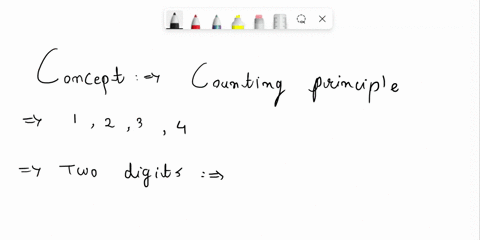 Concept :=> Counting principle
=> 1 , 2 , 3 , 4
=> Two digits :=>